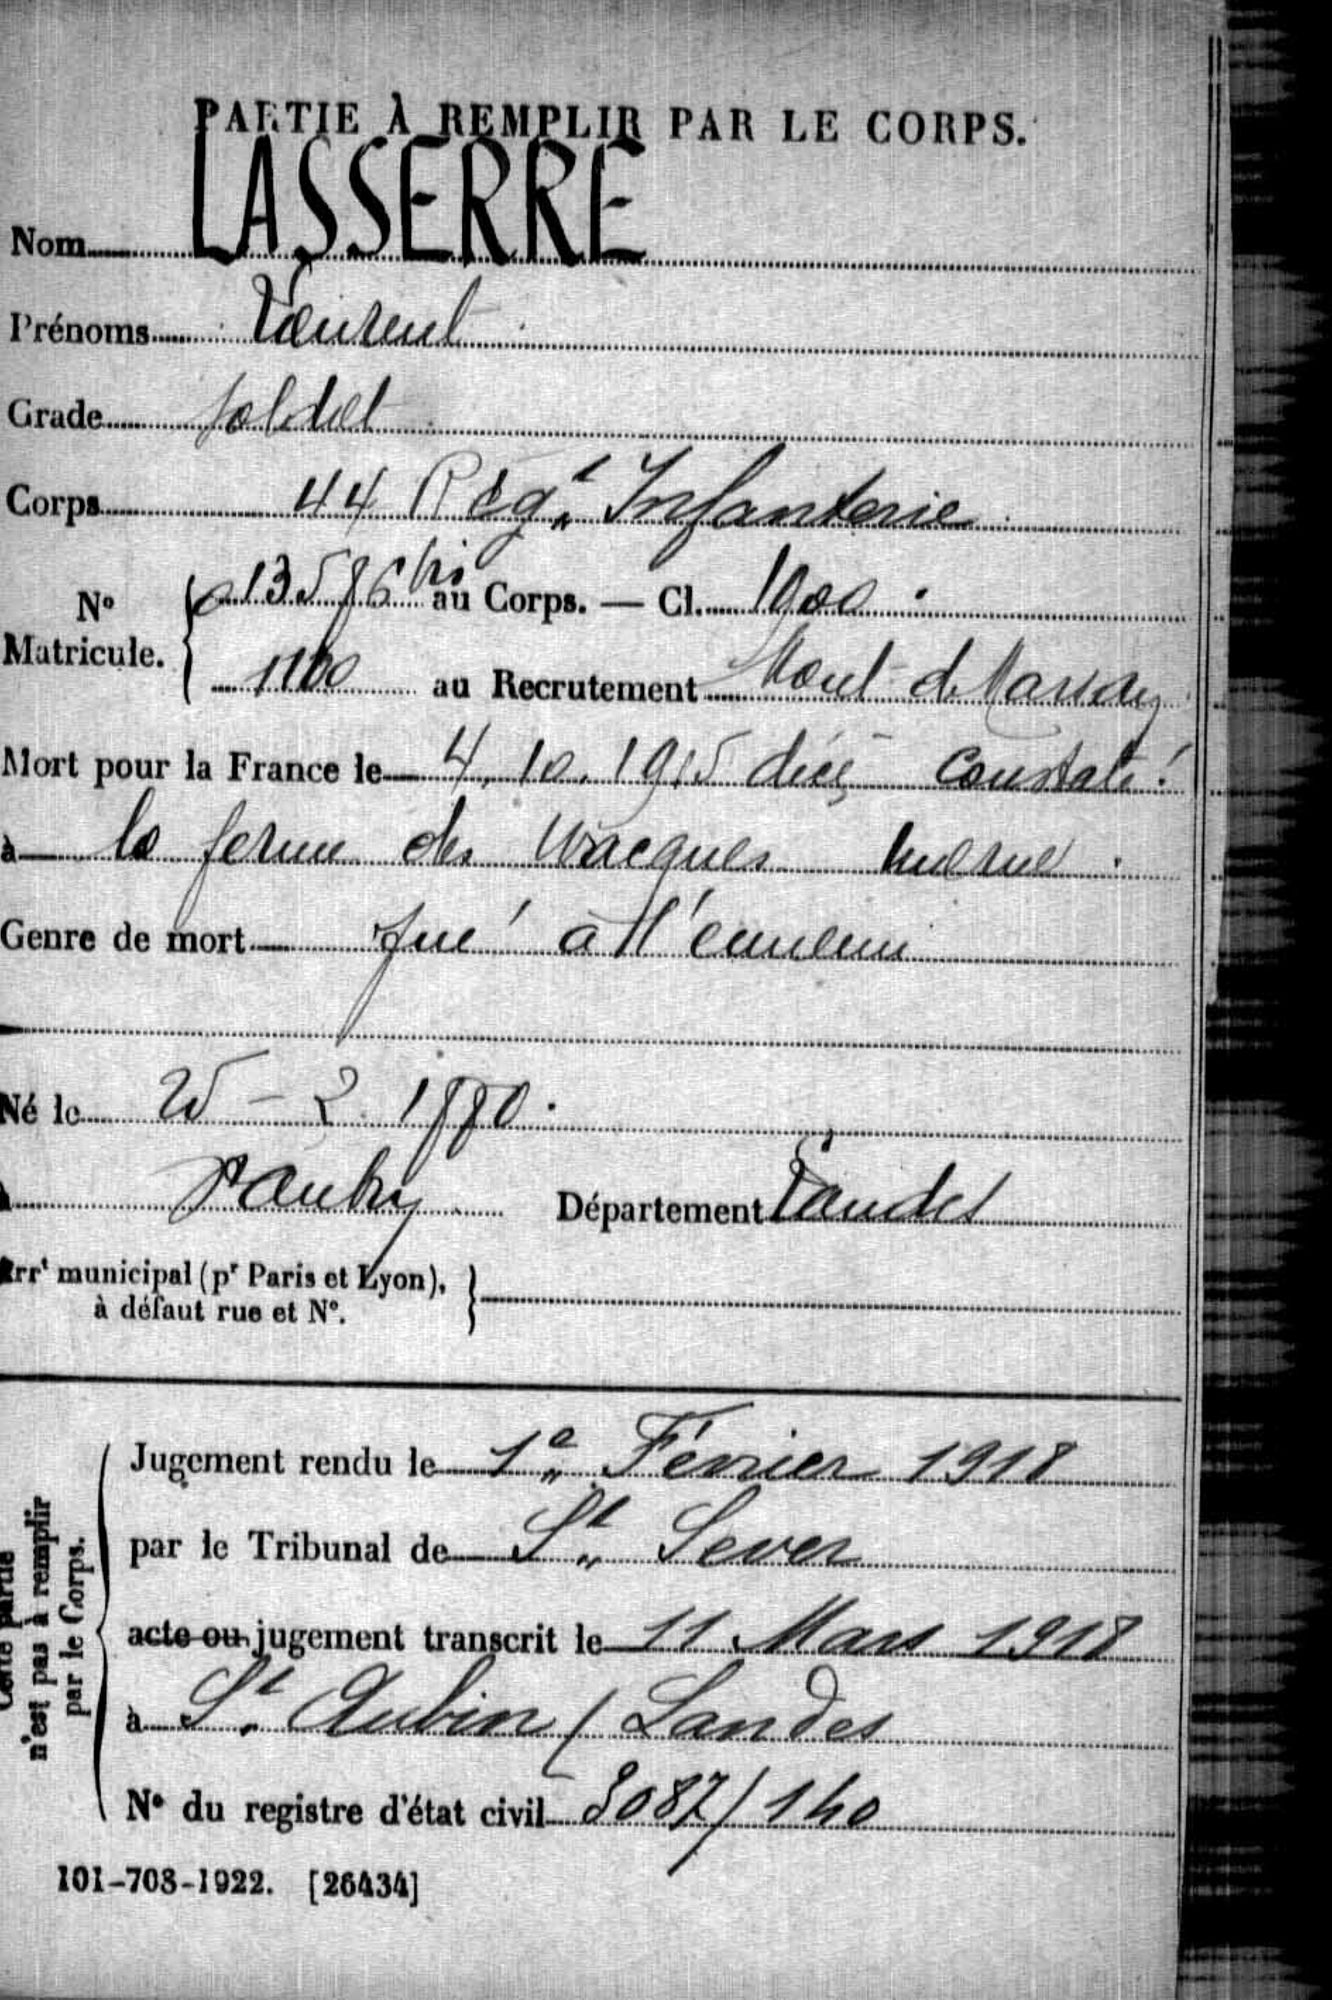 PARTIE À REMPLIR PAR LE CORPS.
Nom LASSERRE
Prénoms Laurent
Grade Soldat
Corps 44 Régt Infanterie
No Matricule. 013586 bis au Corps. — Cl. 1900
1160 au Recrutement Mont de Marsan
Mort pour la France le 4.10.1915 décès constaté
à la ferme des Wacques Marne
Genre de mort Tué à l'ennemi
Né le 25 - 2 1880
à Doazit Département Landes
Arrt municipal (pr Paris et Lyon),
à défaut rue et No.
Cette partie
n'est pas à remplir
par le Corps.
Jugement rendu le 1er Février 1918
par le Tribunal de St Sever
acte ou jugement transcrit le 11 Mars 1918
à St Aubin (Landes
No du registre d'état civil 3087/140
101-708-1922. [26434]